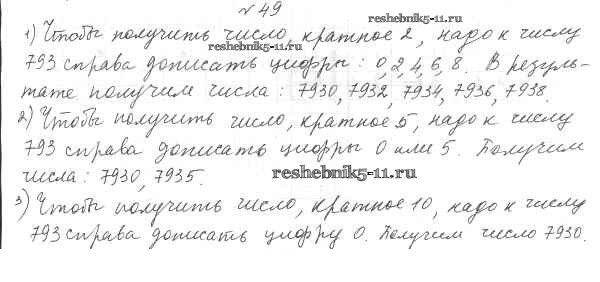 № 49
reshebnik5-11.ru
1) Чтобы получить число, кратное 2, надо к числу
reshebnik5-11.ru
793 справа дописать цифры: 0, 2, 4, 6, 8. В резуль-
тате получим числа: 7930, 7932, 7934, 7936, 7938.
2) Чтобы получить число, кратное 5, надо к числу
793 справа дописать цифры 0 или 5. Получим
числа: 7930, 7935.
reshebnik5-11.ru
3) Чтобы получить число, кратное 10, надо к числу
793 справа дописать цифру 0. Получим число 7930.